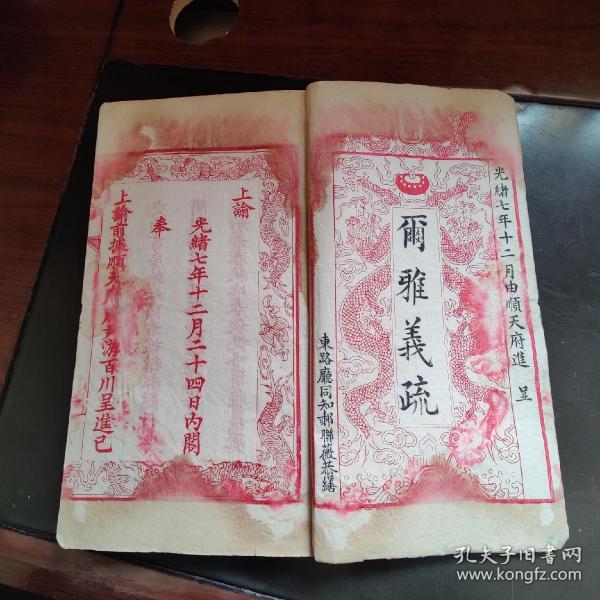 光緒七年十二月由順天府進呈
爾雅義疏
東路廳同知郝聯薇恭繕
上諭
光緒七年十二月二十四日內閣
奉
上諭前據順天府
游百川呈進已
孔夫子旧书网
www.kongfz.com